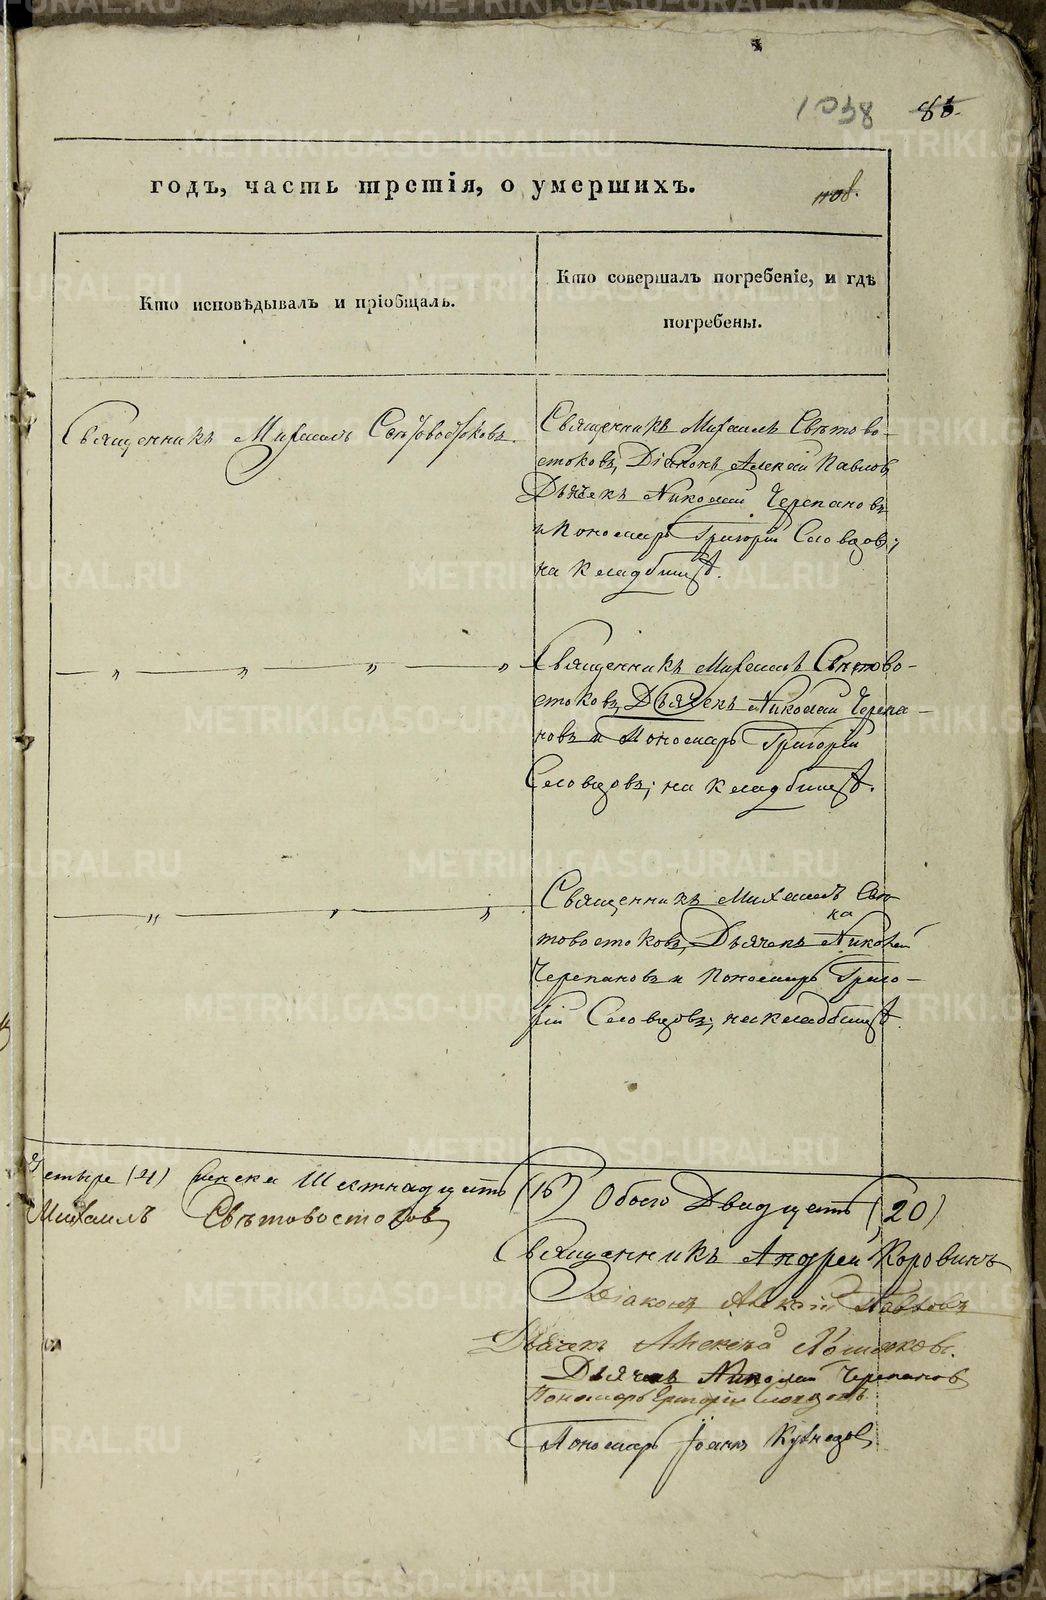 1038 85.
годъ, часть третія, о умершихъ.
нов.
Кто исповѣдывалъ и пріобщалъ.
Кто совершалъ погребеніе, и гдѣ
погребены.
Священникъ Михаилъ Свѣтовостоковъ.
Священникъ Михаилъ Свѣтово-
стоковъ, Діаконъ Алексій Павловъ
Дьячекъ Николай Черепановъ
и Пономарь Григорій Словцовъ;
на кладбищѣ.
— „ — „ — „ — „
Священникъ Михаилъ Свѣтово-
стоковъ, Дьячекъ Николай Черепа-
новъ и Пономарь Григорій
Словцовъ; на кладбищѣ.
— „ — „ — „
Священникъ Михаилъ Свѣ
товостоковъ, Дьячекъ Николай
Черепановъ и Пономарь Григо-
рій Словцовъ; на кладбищѣ.
Четыре (4) женска Шестнадцать (16) Обоего Двадцать (20)
Михаилъ Свѣтовостоковъ
Священникъ Андрей Коровинъ
Діаконъ Алексій Павловъ
Дьячекъ
Дьячекъ Николай Черепановъ
Пономарь Григорій Словцовъ
Пономарь Іоаннъ Кузнецовъ
METRIKI.GASO-URAL.RU